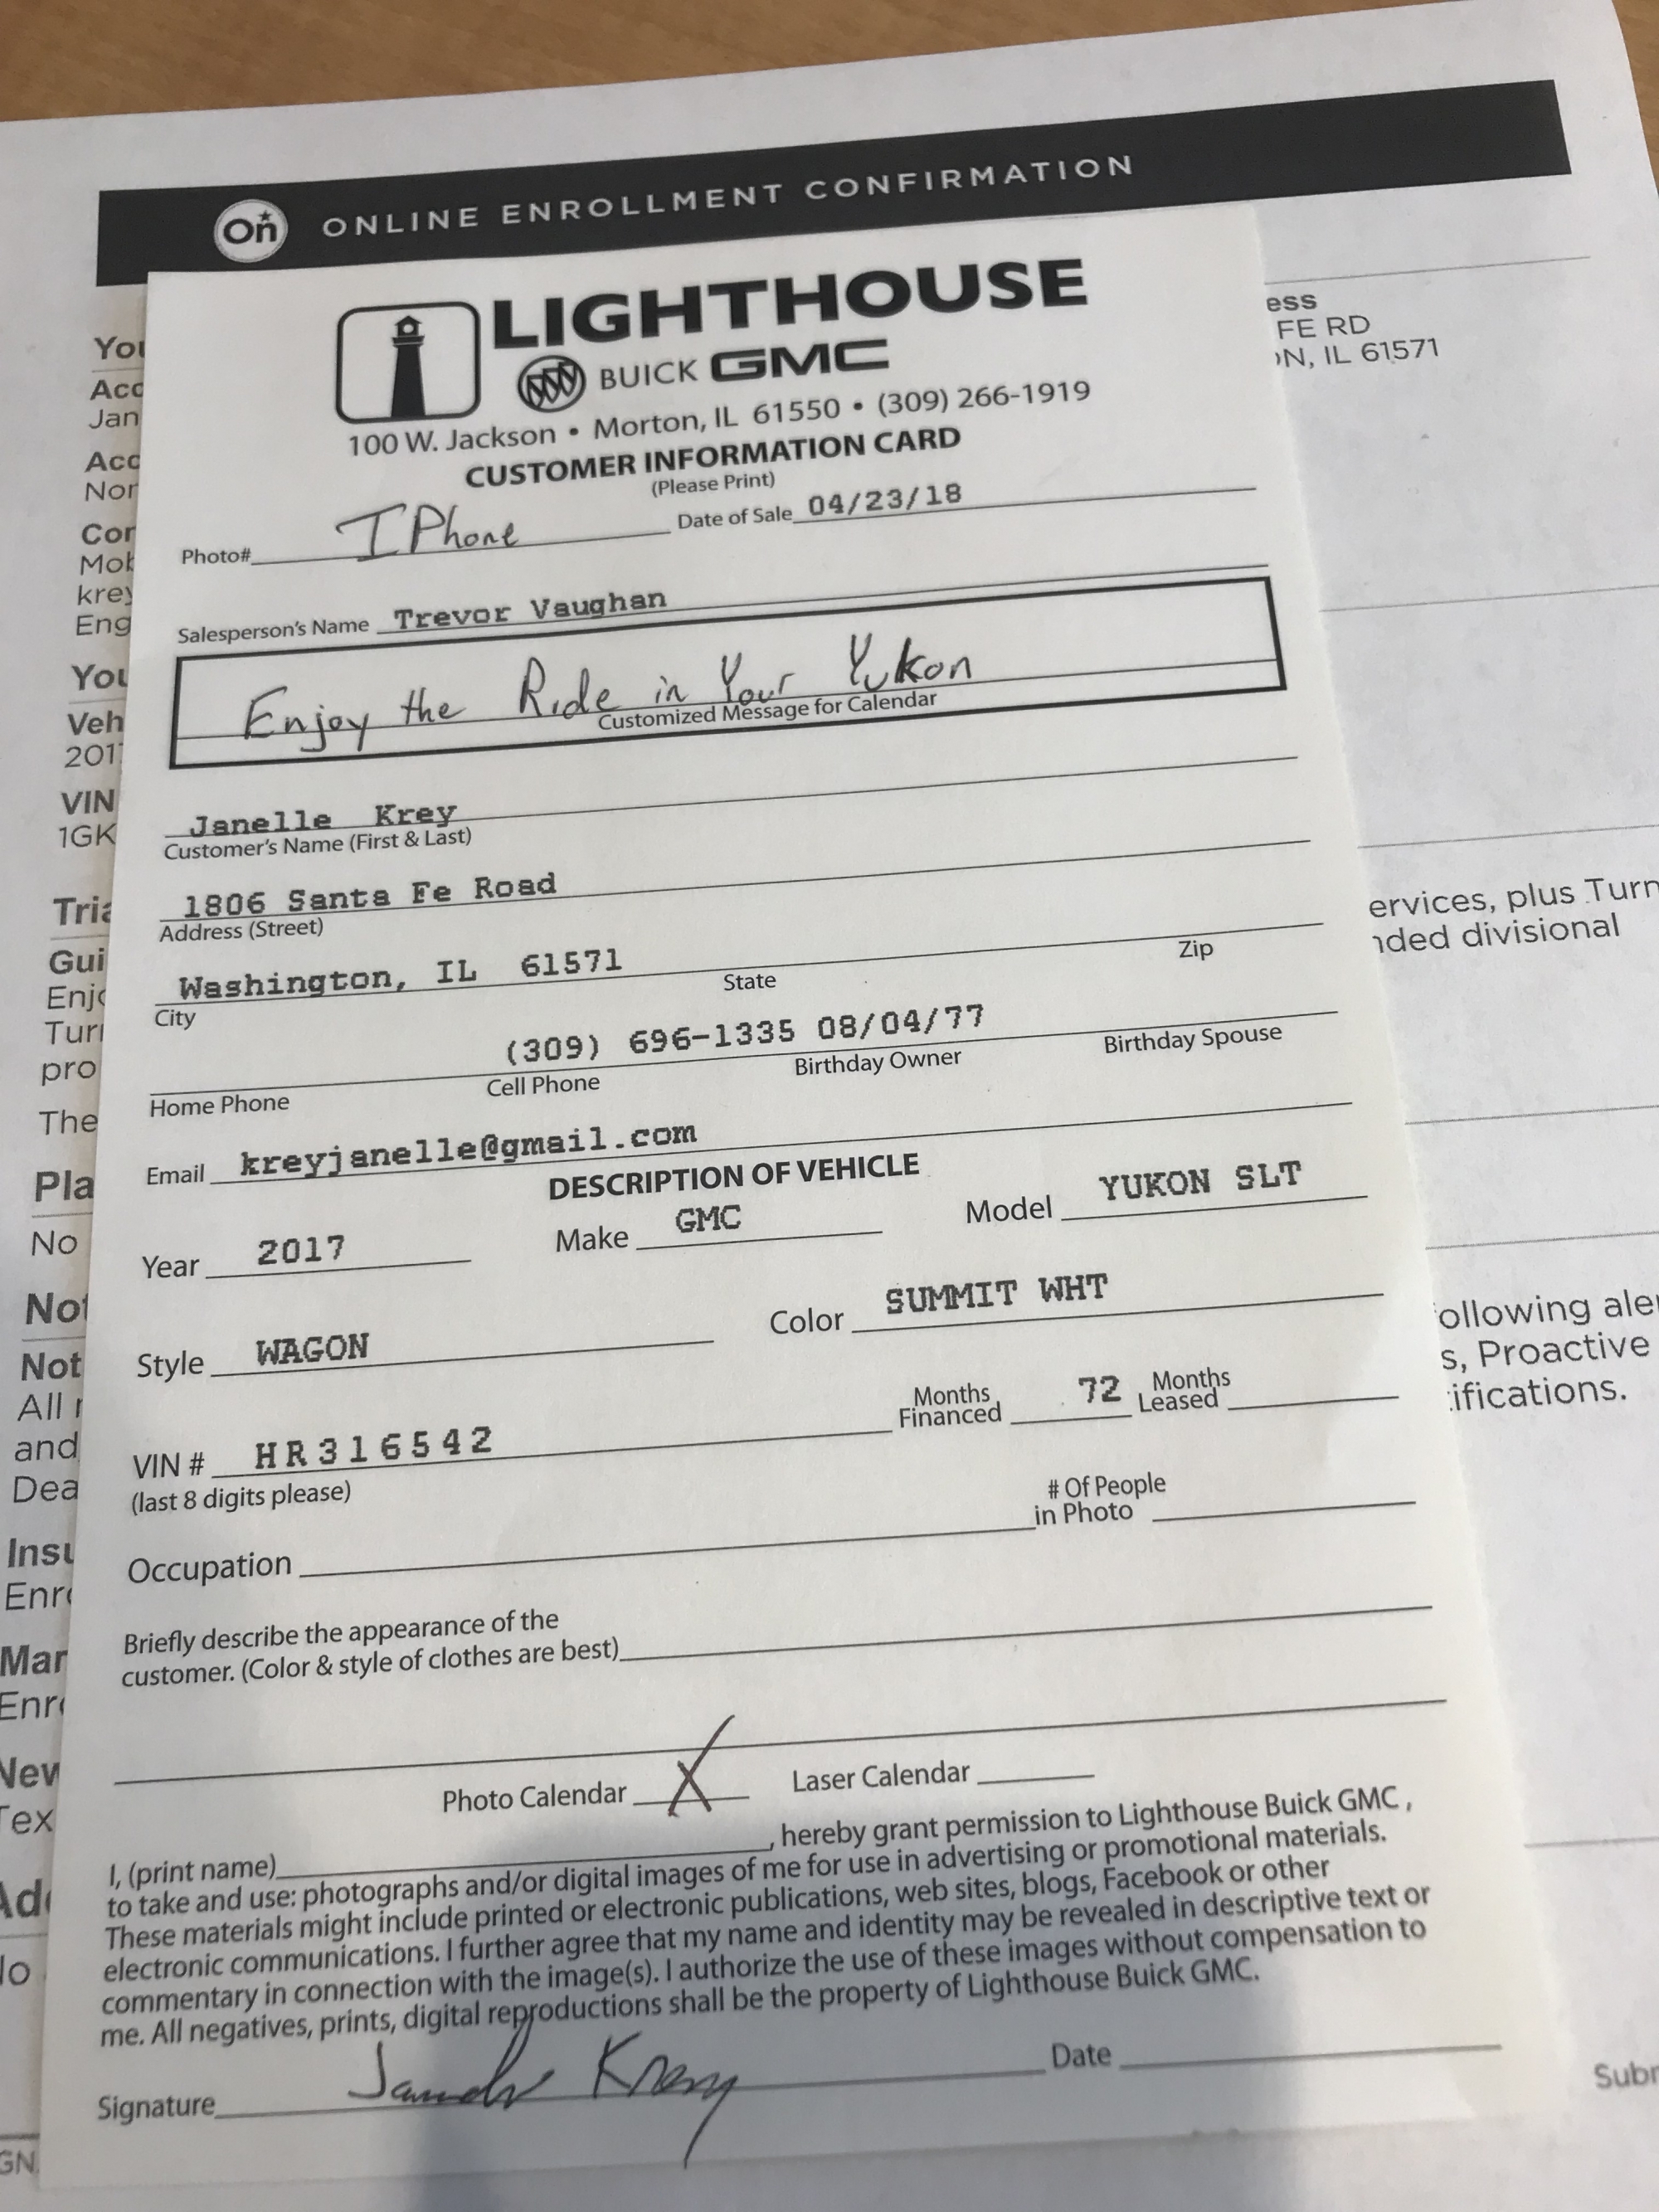 On ONLINE ENROLLMENT CONFIRMATION
LIGHTHOUSE
BUICK GMC
100 W. Jackson • Morton, IL 61550 • (309) 266-1919
CUSTOMER INFORMATION CARD
(Please Print)
Photo# IPhone Date of Sale 04/23/18
Salesperson's Name Trevor Vaughan
Enjoy the Ride in Your Yukon
Customized Message for Calendar
Janelle Krey
Customer's Name (First & Last)
1806 Santa Fe Road
Address (Street)
Washington, IL 61571
City State Zip
(309) 696-1335 08/04/77
Home Phone Cell Phone Birthday Owner Birthday Spouse
Email kreyjanelle@gmail.com
DESCRIPTION OF VEHICLE
Year 2017 Make GMC Model YUKON SLT
Style WAGON Color SUMMIT WHT
VIN # HR316542 Months Financed 72 Months Leased
(last 8 digits please)
Occupation # Of People in Photo
Briefly describe the appearance of the
customer. (Color & style of clothes are best)
Photo Calendar X Laser Calendar
I, (print name) , hereby grant permission to Lighthouse Buick GMC ,
to take and use: photographs and/or digital images of me for use in advertising or promotional materials.
These materials might include printed or electronic publications, web sites, blogs, Facebook or other
electronic communications. I further agree that my name and identity may be revealed in descriptive text or
commentary in connection with the image(s). I authorize the use of these images without compensation to
me. All negatives, prints, digital reproductions shall be the property of Lighthouse Buick GMC.
Signature Janelle Krey Date
FE RD
IL 61571
VIN
1GK
The
No
All
and
plus
divisional
Proactive